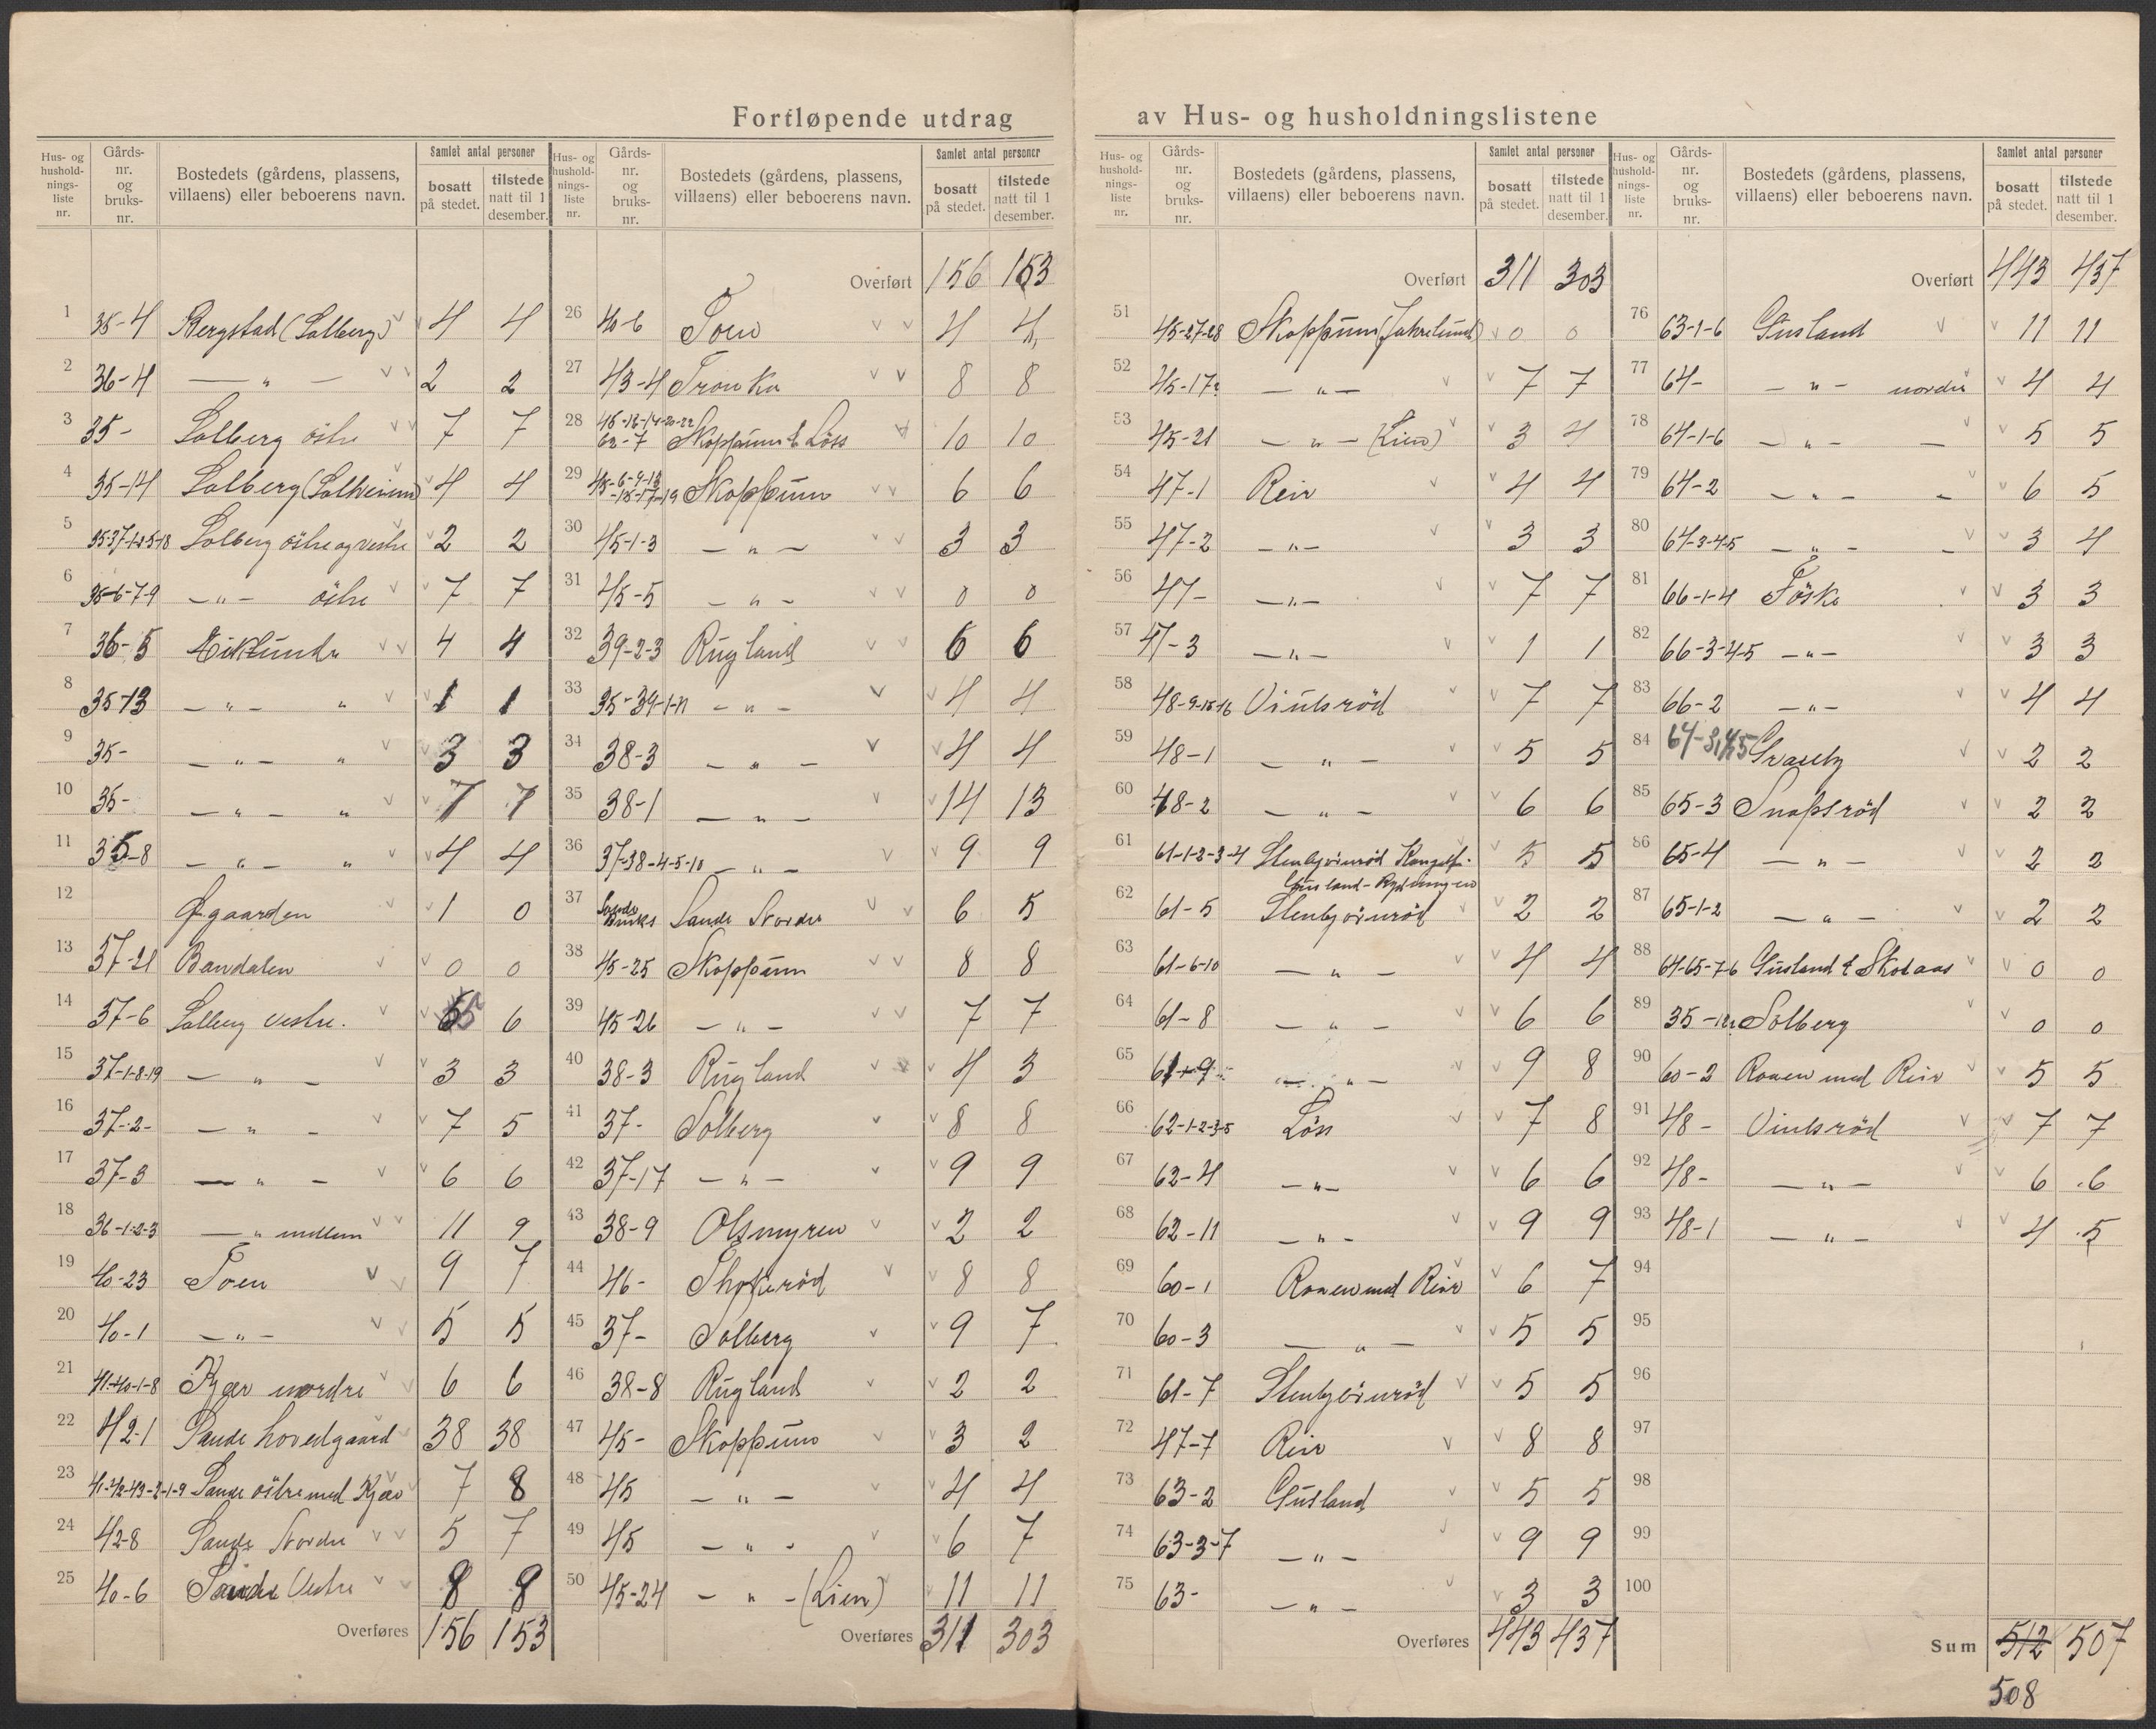 Fortløpende utdrag av Hus- og husholdningslistene
Hus- og husholdnings- liste nr. Gårds- nr. og bruks- nr. Bostedets (gårdens, plassens, villaens) eller beboerens navn. Samlet antal personer bosatt på stedet. tilstede natt til 1 desember.
1 35-4 Bergstad (Solberg) 4 4
2 36-4 — " — 2 2
3 35- Solberg östre 7 7
4 35-14 Solberg (Solheim) 4 4
5 35-37-1-2-5-18 Solberg östre og vestre 2 2
6 35-6-7-9 — " — östre 7 7
7 36-5 Eiklund 4 4
8 35-13 — " — " 1 1
9 35- — " — " 3 3
10 35- — " — " 7 7
11 35-8 — " — " 4 4
12 Øgaarden 1 0
13 37-21 Bandalen 0 0
14 37-6 Solberg vestre. 5 6
15 37-1-8-19 — " — 3 3
16 37-2- — " — 7 5
17 37-3 — " — 6 6
18 36-1-2-3 — " mellem 11 9
19 40-23 Toen 9 7
20 40-1 — " — 5 5
21 41-40-1-8 Kjær nordre 6 6
22 42-1 Sande hovedgaard 38 38
23 41-42-43-2-1-9 Sande östre med Kjær 7 8
24 42-8 Sande Nordre 5 7
25 40-6 Sande Vestre 8 8
Overføres 156 153
Hus- og husholdnings- liste nr. Gårds- nr. og bruks- nr. Bostedets (gårdens, plassens, villaens) eller beboerens navn. Samlet antal personer bosatt på stedet. tilstede natt til 1 desember.
Overført 156 153
26 40-6 Toen 4 4
27 43-4 Tronka 8 8
28 45-16-14-20-22 62-7 Skoppum & Löss 10 10
29 Skoppum 6 6
30 45-1-3 — " — 3 3
31 45-5 — " — 0 0
32 39-2-3 Rugland 6 6
33 35-39-1-11 — " — 4 4
34 38-3 — " — 4 4
35 38-1 — " — 14 13
36 37-38-4-5-10 — " — 9 9
37 Sande Bruks Sande Nordre 6 5
38 45-25 Skoppum 8 8
39 45-26 — " — 7 7
40 38-3 Rugland 4 3
41 37- Solberg 8 8
42 37-17 — " — 9 9
43 38-9 Olsmyren 2 2
44 46- 8 8
45 37- Solberg 9 7
46 38-8 Rugland 2 2
47 45- Skoppum 3 2
48 45 — " — 4 4
49 45 — " - 6 7
50 45-24 — " — (Lien) 11 11
Overføres 311 303
Hus- og husholdnings- liste nr. Gårds- nr. og bruks- nr. Bostedets (gårdens, plassens, villaens) eller beboerens navn. Samlet antal personer bosatt på stedet. tilstede natt til 1 desember.
Overført 311 303
51 45-27-28 Skoppum 0 0
52 45-17 — " — 7 7
53 45-21 — " — (Lien) 3 4
54 47-1 Reir 4 4
55 47-2 — " — 3 3
56 47- — " — 7 7
57 47-3 — " — 1 1
58 48-9-15-16 Vintsröd 7 7
59 48-1 — " — 5 5
60 48-2 — " — 6 6
61 61-1-2-3-4 Stenbjörnröd 5 5
62 61-5 Gusland-Rydningen Stenbjörnröd 2 2
63 61-6-10 — " — 4 4
64 61-8 — " — 6 6
65 61-9 — " — 9 8
66 62-1-2-3-5 Löss 7 8
67 62-4 — " — 6 6
68 62-11 — " — 9 9
69 60-1 Ronen med Reir 6 7
70 60-3 — " — 5 5
71 61-7 Stenbjörnröd 5 5
72 47-7 Reir 8 8
73 63-2 Gusland 5 5
74 63-3-7 — " — 9 9
75 63- — " — 3 3
Overføres 443 437
Hus- og husholdnings- liste nr. Gårds- nr. og bruks- nr. Bostedets (gårdens, plassens, villaens) eller beboerens navn. Samlet antal personer bosatt på stedet. tilstede natt til 1 desember.
Overført 443 437
76 63-1-6 Gusland 11 11
77 64- — " — nordre 4 4
78 64-1-6 — " — — 5 5
79 64-2 — " — " 6 5
80 64-3-4-5 — " — — 3 4
81 66-1-4 Föske 3 3
82 66-3-4-5 — " — 3 3
83 66-2 — " — 4 4
84 64-3,4,5 2 2
85 65-3 Snapsröd 2 2
86 65-4 — " — 2 2
87 65-1-2 — " — 2 2
88 64-65-7-6 Gusland & Skolaas 0 0
89 Solberg 0 0
90 60-2 Ronen med Reir 5 5
91 48- Vintsröd 7 7
92 48- — " — 6 6
93 48-1 — " — 4 5
94
95
96
97
98
99
100
Sum 512 507
508